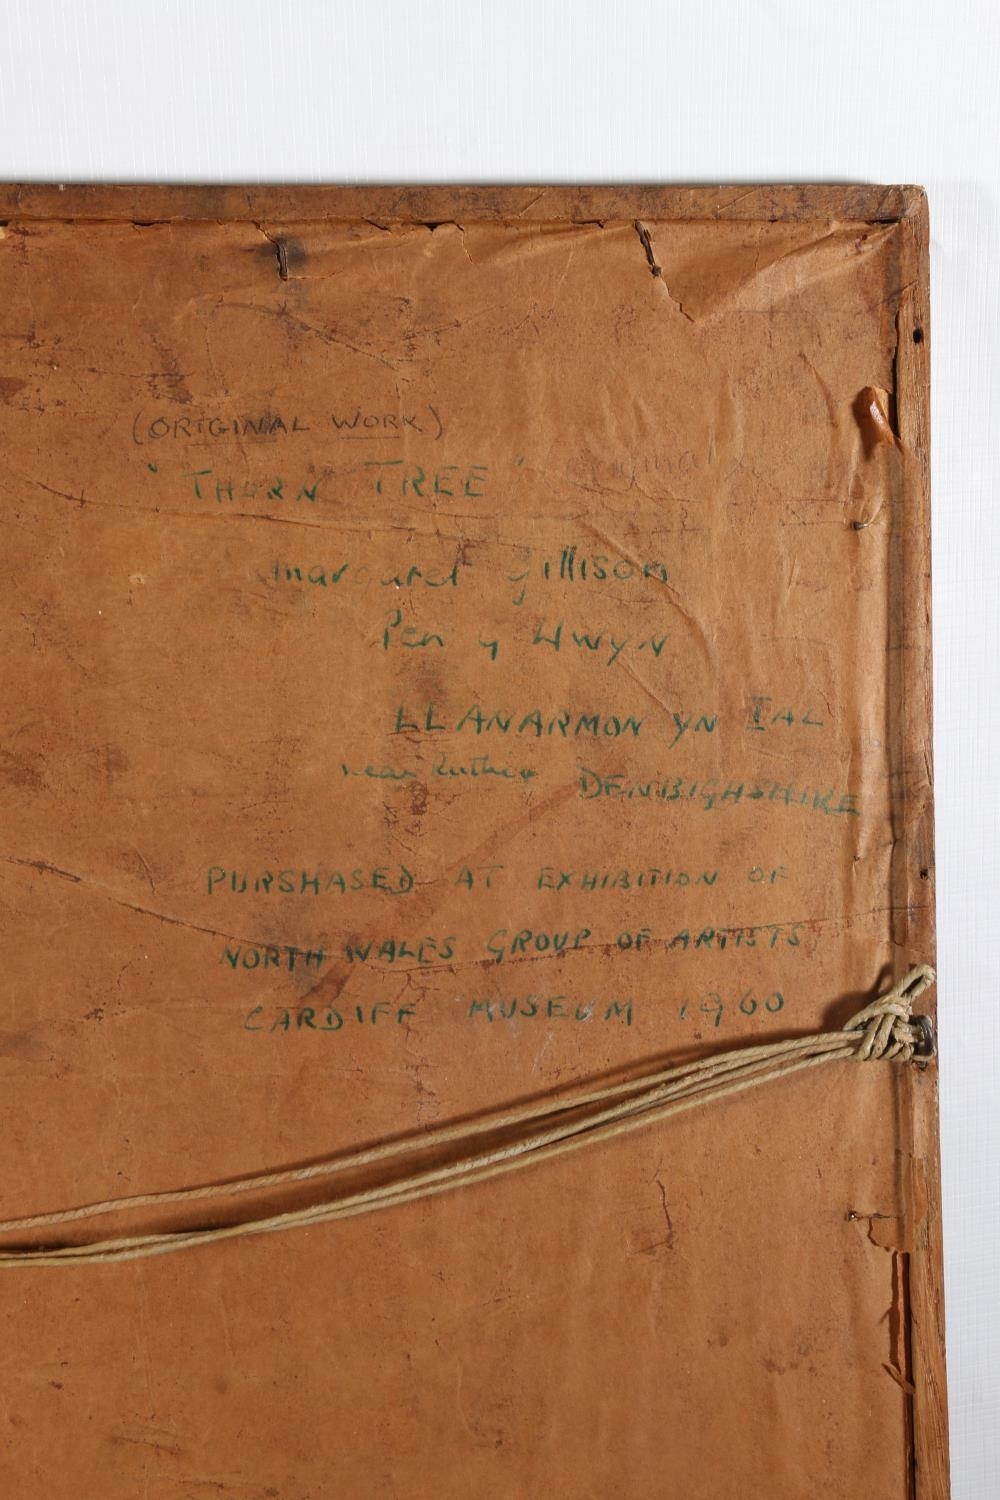 (ORIGINAL WORK)
"THORN TREE" (original
Margaret Gillison
Pen y Llwyn
LLANARMON YN IAL
near Ruthin DENBIGHSHIRE
PURSHASED AT EXHIBITION OF
NORTH WALES GROUP OF ARTISTS
CARDIFF MUSEUM 1960